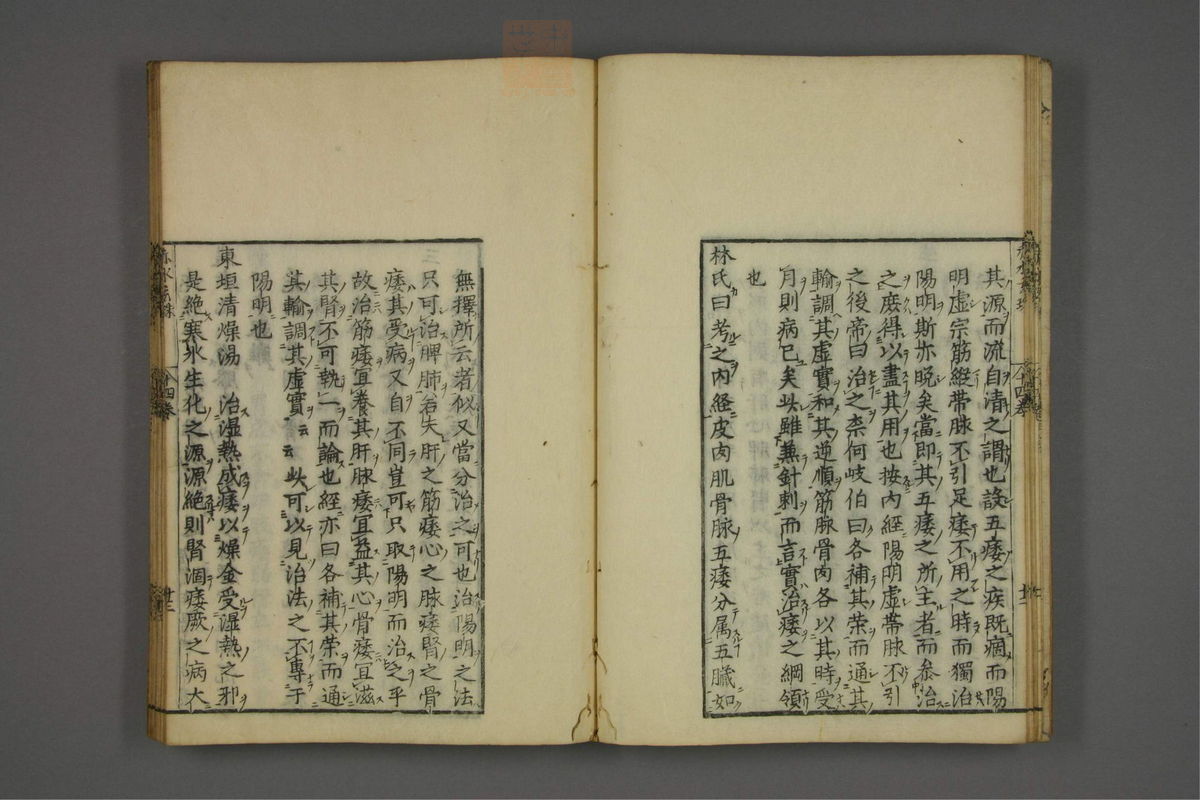 其源而流自清之謂也設五痿之疾既痼而陽
明虛宗筋縱帶脉不引足痿不用之時而獨治
陽明斯亦晩矣當即其五痿之所主者而叅治
之庶得以盡其用也按内經陽明虛帶脉不引
之後帝曰治之柰何岐伯曰各補其荣而通其
輸調其虛實和其逆順筋脉骨肉各以其時受
月則病已矣此雖兼針刺而言實治痿之綱領
也
林氏曰考之内経皮肉肌骨脉五痿分属五臓如
無擇所云者似又當分治之可也治陽明之法
只可治脾肺若夫肝之筋痿心之脉痿腎之骨
痿其受病又自不同豈可只取陽明而治之乎
故治筋痿宜養其肝脉痿宜益其心骨痿宜滋
其腎不可執一而論也經亦曰各補其荣而通
其輸調其虛實云云此可以見治法之不專于
陽明也
東垣清燥湯 治湿熱成痿以燥金受湿熱之邪
是絶寒水生化之源源絶則腎涸痿厥之病大
赤水玄珠
十四卷
廿二